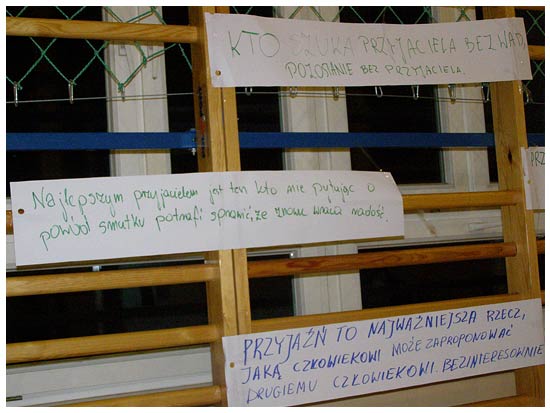 KTO SZUKA PRZYJACIELA BEZ WAD,
POZOSTANIE BEZ PRZYJACIELA.
Najlepszym przyjacielem jest ten kto nie pytając o
powód smutku potrafi sprawić, że znowu wraca radość.
PRZYJAŹŃ TO NAJWAŻNIEJSZA RZECZ,
JAKĄ CZŁOWIEKOWI MOŻE ZAPROPONOWAĆ
DRUGIEMU CZŁOWIEKOWI. BEZINTERESOWNIE